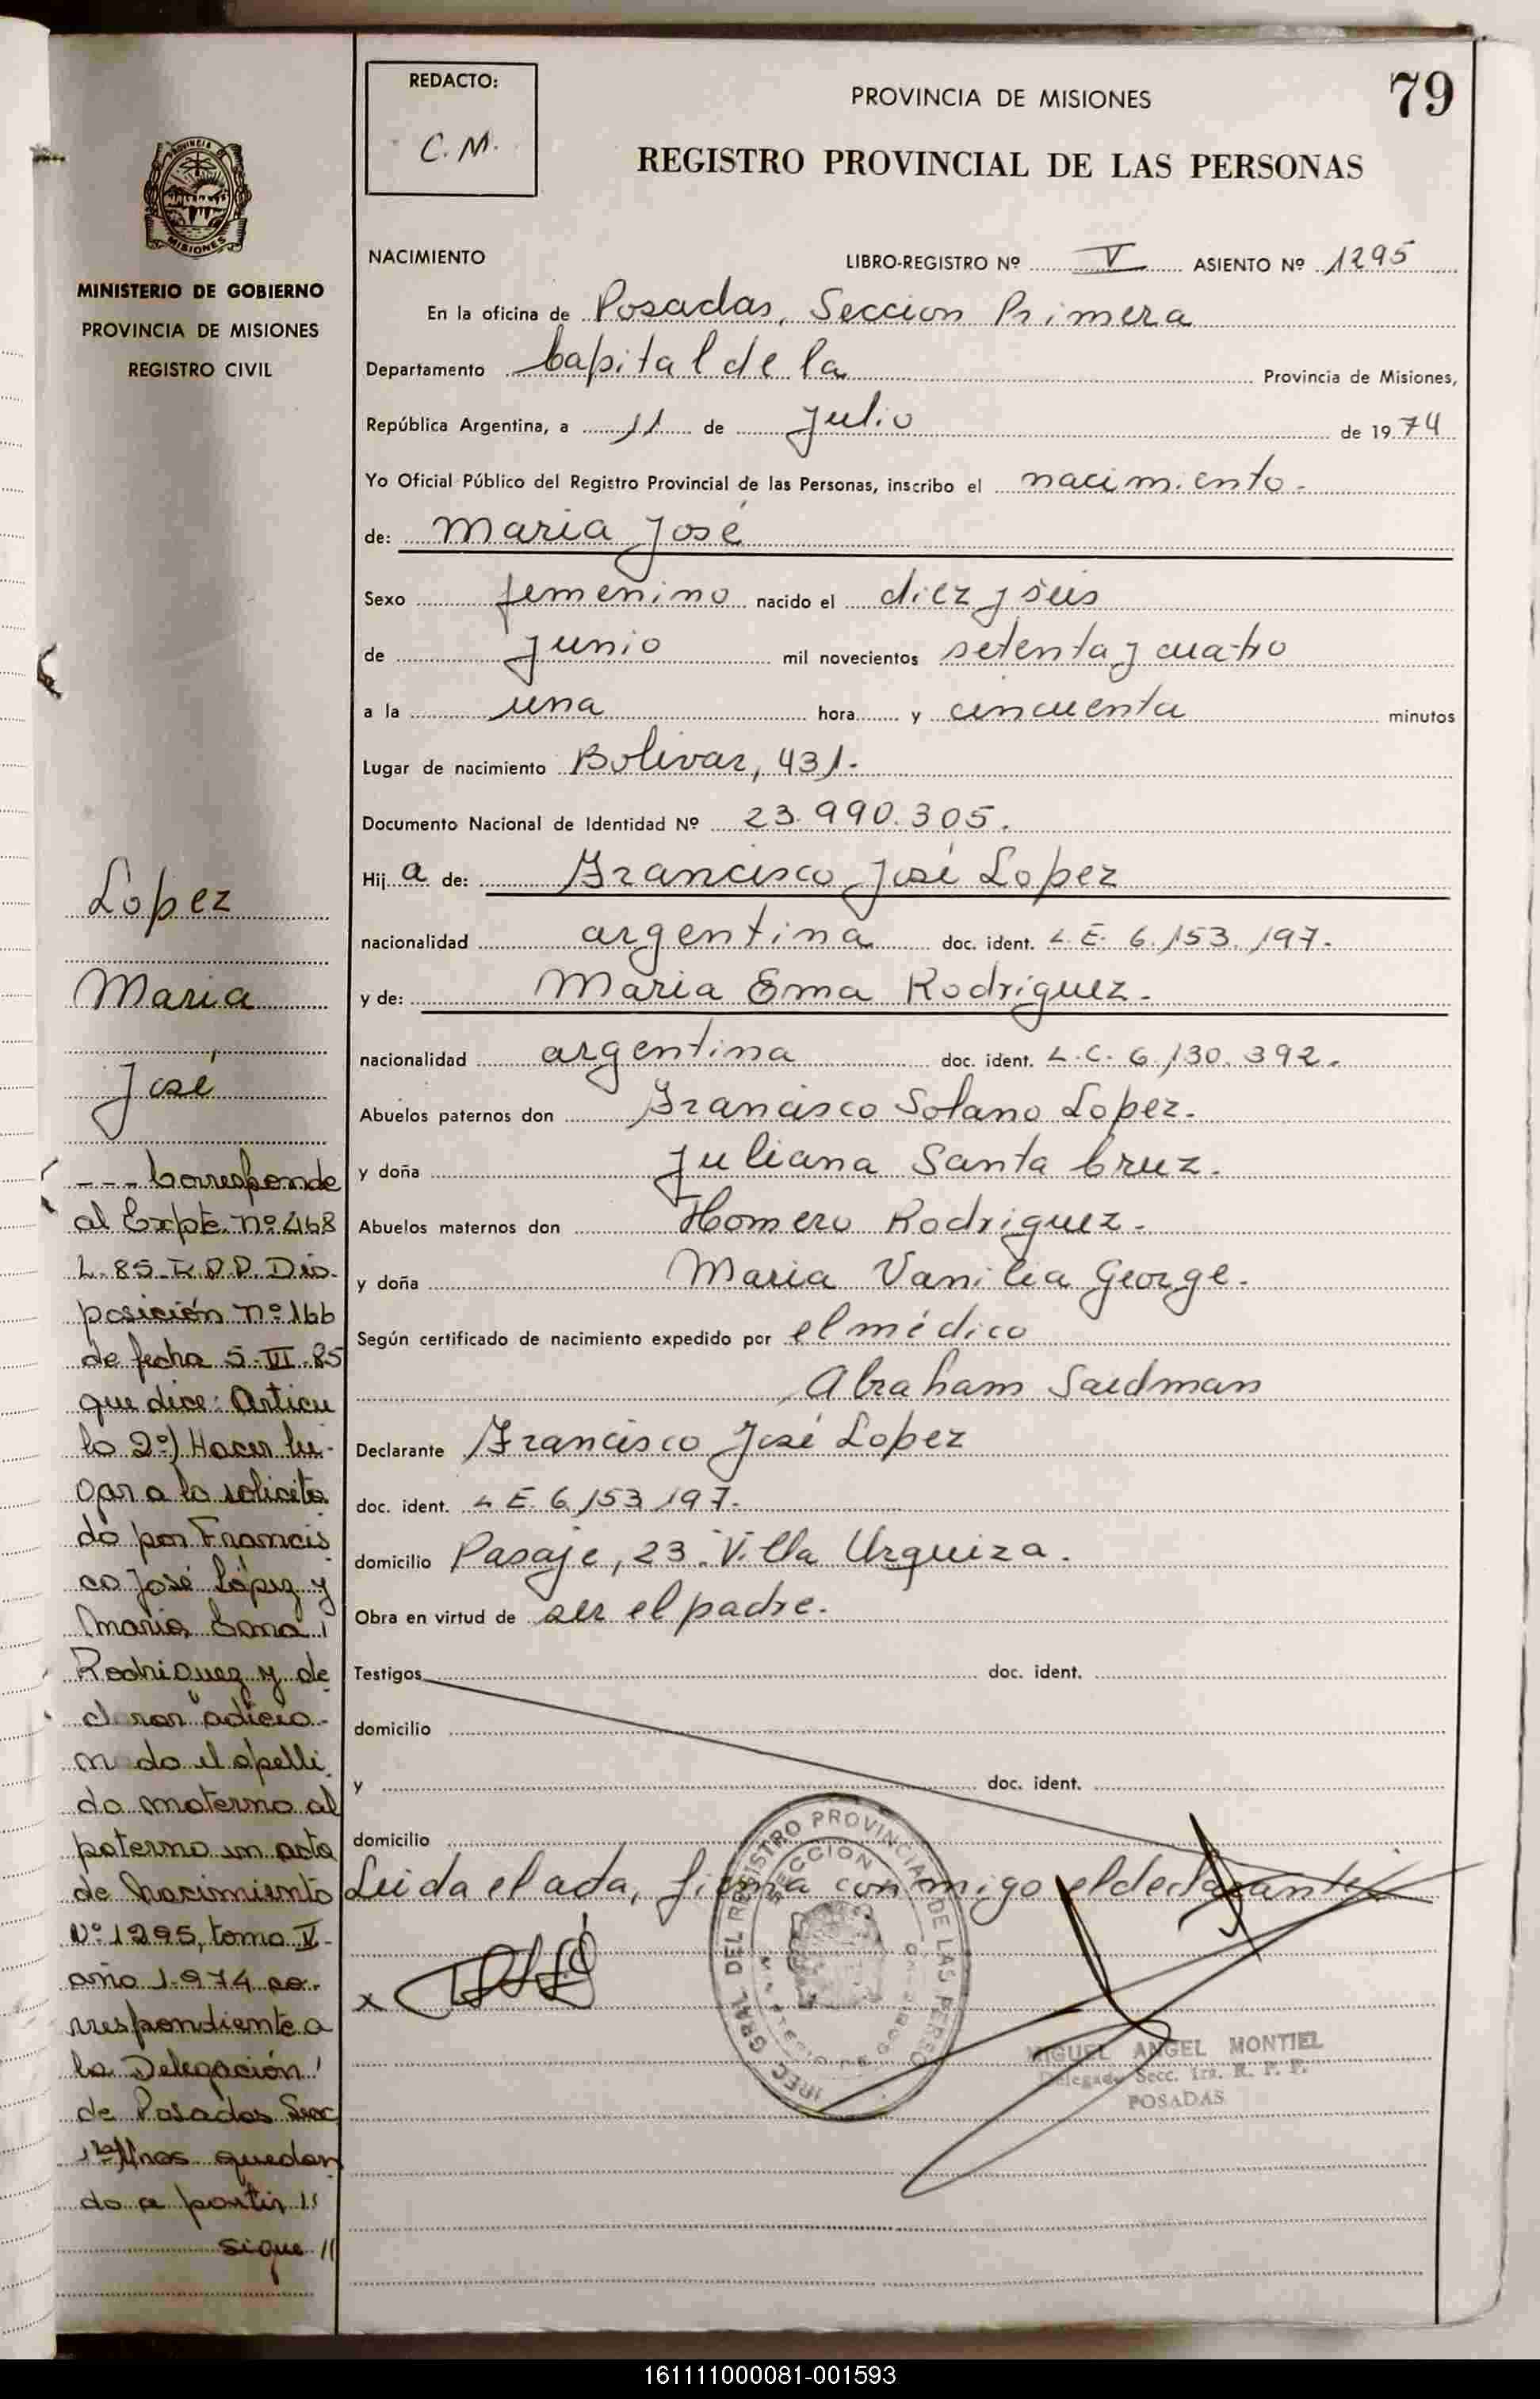 79
REDACTO:
C. M.
PROVINCIA DE MISIONES
REGISTRO PROVINCIAL DE LAS PERSONAS
PROVINCIA DE
MISIONES
MINISTERIO DE GOBIERNO
PROVINCIA DE MISIONES
REGISTRO CIVIL
NACIMIENTO LIBRO-REGISTRO Nº V ASIENTO Nº 1295
En la oficina de Posadas, Seccion Primera
Departamento Capital de la Provincia de Misiones,
República Argentina, a 11 de Julio de 1974
Yo Oficial Público del Registro Provincial de las Personas, inscribo el nacimiento.
de: Maria José
Sexo femenino nacido el diez y seis
de junio mil novecientos setenta y cuatro
a la una hora y cincuenta minutos
Lugar de nacimiento Bolivar, 431.
Documento Nacional de Identidad Nº 23.990.305.
Hij a de: Francisco José Lopez
nacionalidad argentina doc. ident. L.E. 6.153.197.
y de: Maria Ema Rodriguez.
nacionalidad argentina doc. ident. L.C. 6.130.392.
Abuelos paternos don Francisco Solano Lopez.
y doña Juliana Santa Cruz.
Abuelos maternos don Homero Rodriguez.
y doña Maria Vanilia George.
Según certificado de nacimiento expedido por el médico
Abraham Saidman
Declarante Francisco José Lopez
doc. ident. L E. 6.153.197.
domicilio Pasaje, 23. Villa Urquiza.
Obra en virtud de ser el padre.
Testigos doc. ident.
domicilio
y doc. ident.
domicilio
Leida el acta, firma conmigo el declarante
x
GRAL DEL REGISTRO PROVINCIAL DE LAS PERSO
SECCION
MIGUEL ANGEL MONTIEL
Delegado Secc. 1ra. R. P. P.
POSADAS
Lopez
Maria
José
--- Corresponde
al Expte. Nº 468
L. 85. R.P.P. Dis-
posición Nº 166
de fecha 5-VI-85
que dice: Articu
lo 2º) Hacer lu-
gar a lo solicita
do por Francis
co José López y
Maria Ema
Rodriguez y de
clarar adicio-
nado el apelli
do materno al
paterno en acta
de Nacimiento
Nº 1295, tomo V-
año 1.974 co-
rrespondiente a
la Delegación
de Posadas Secc
1ra Mnes quedan
do a partir //
sigue //
161111000081-001593